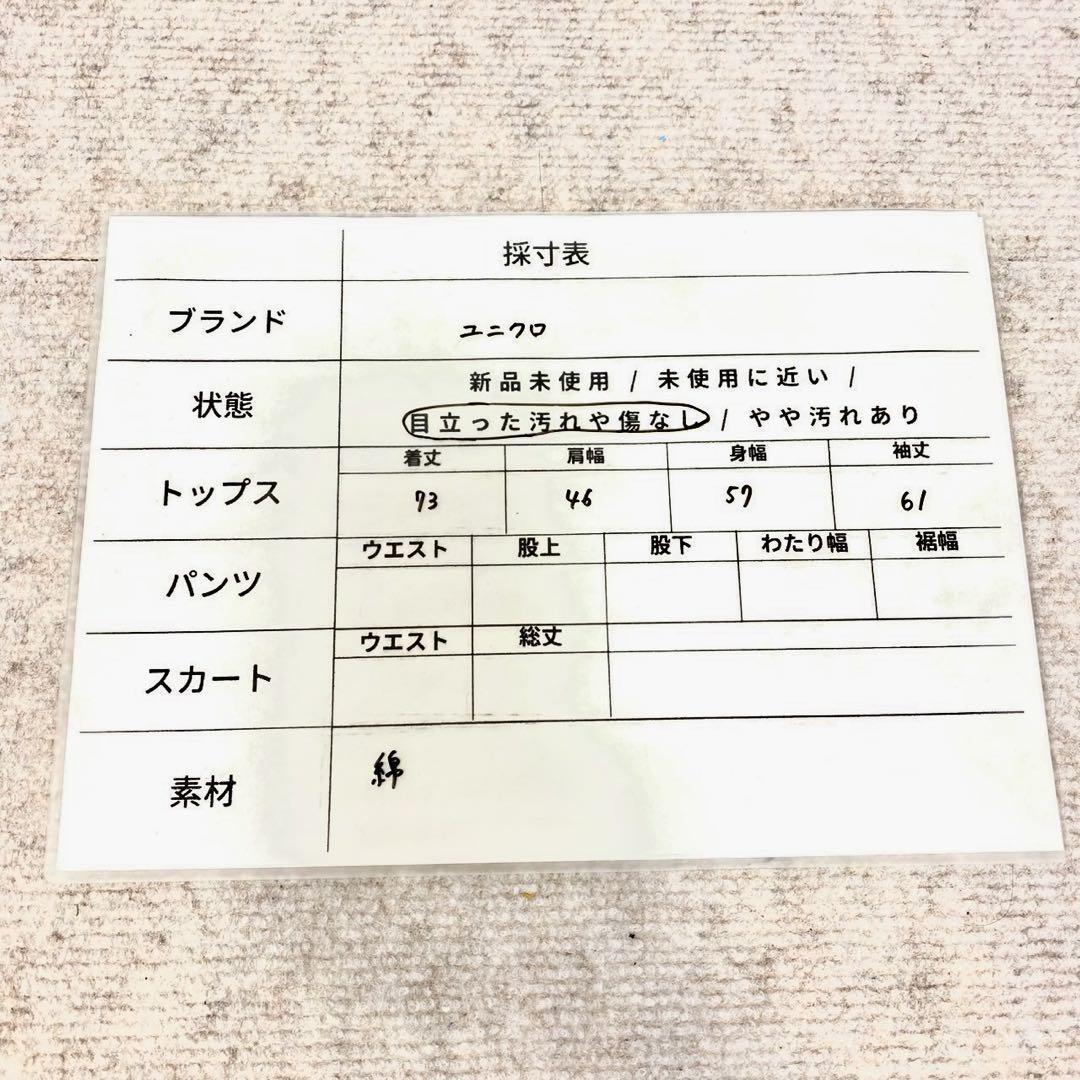 採寸表
ブランド ユニクロ
状態 新品未使用 / 未使用に近い /
目立った汚れや傷なし / やや汚れあり
トップス 着丈 肩幅 身幅 袖丈
73 46 57 61
パンツ ウエスト 股上 股下 わたり幅 裾幅
スカート ウエスト 総丈
素材 綿